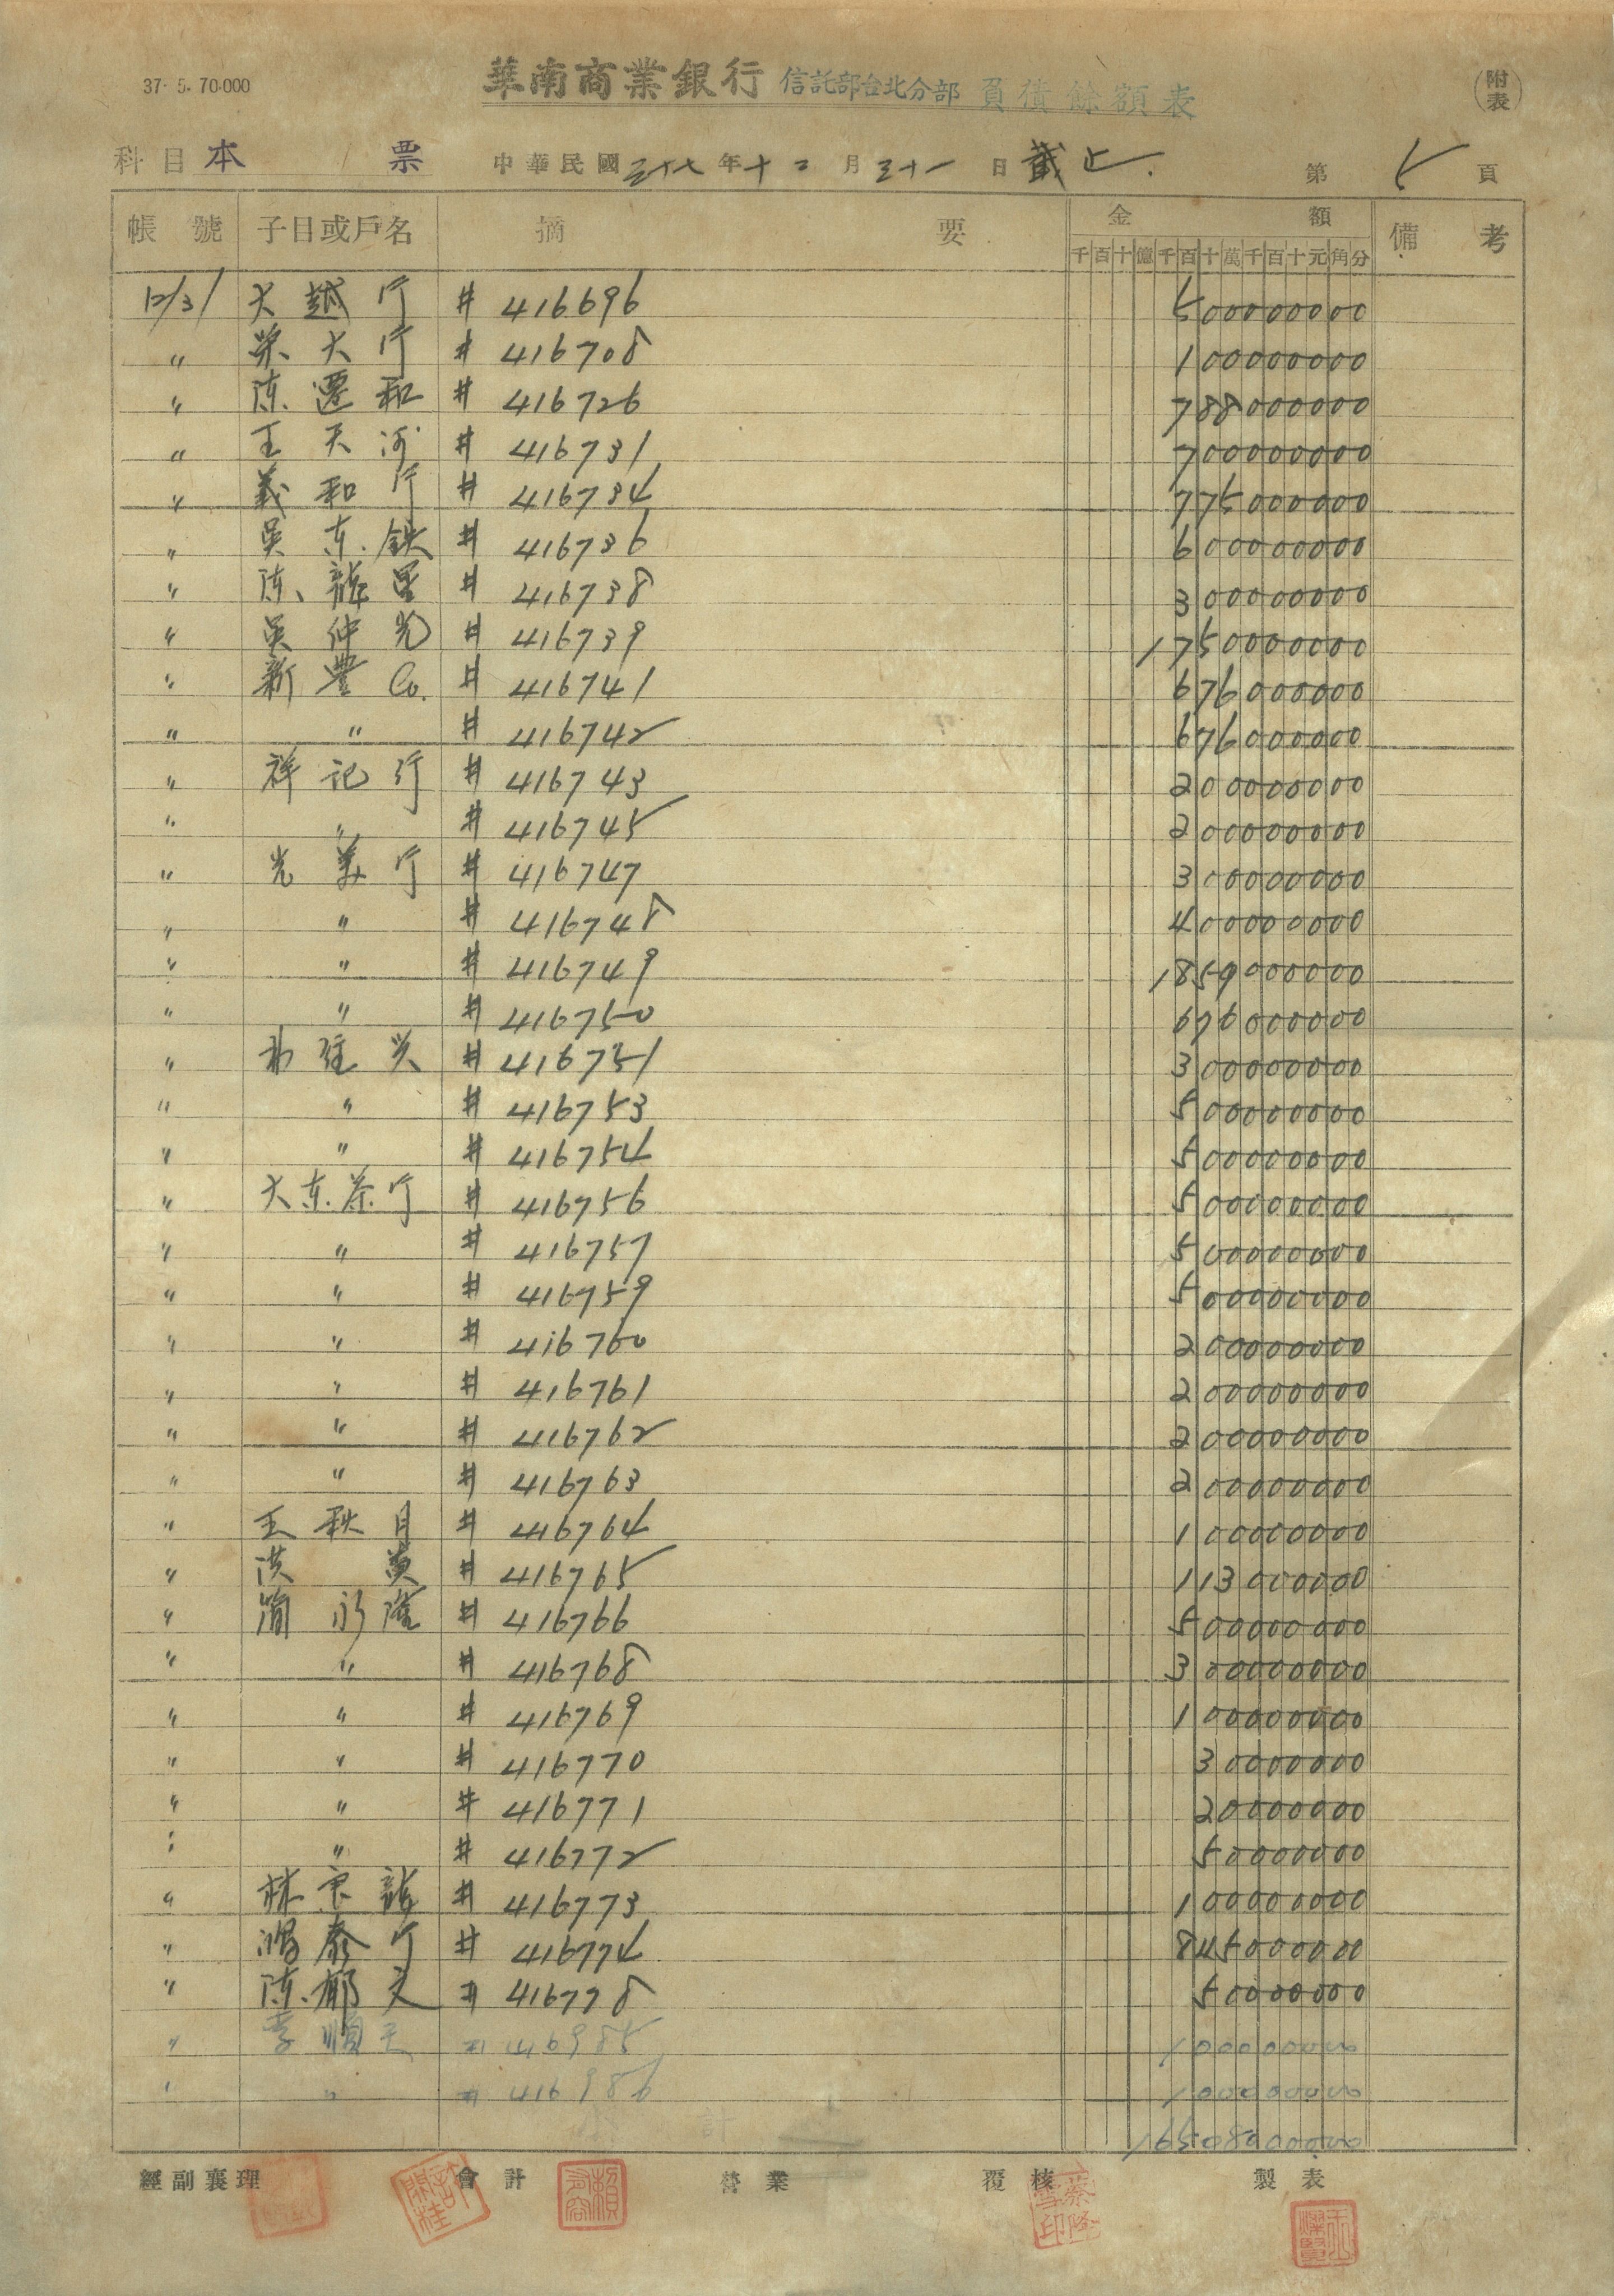 37. 5. 70.000
華南商業銀行 信託部台北分部 負債餘額表
(附表)
科目 本 票 中華民國 三十七 年 十二 月 三十一 日 截止. 第 5 頁
帳號 子目或戶名 摘要 金額 備考
千百十億千百十萬千百十元角分
12/31 大越行 # 416696 500000000
〃 榮大行 # 416708 100000000
〃 陈遷和 # 416726 788000000
〃 王天河 # 416731 700000000
〃 義和行 # 416734 775000000
〃 吳东鉄 # 416736 600000000
〃 陈龍 # 416738 300000000
〃 吳仲光 # 416739 1750000000
〃 新豐Co. # 416741 676000000
〃 〃 # 416742 676000000
〃 祥記行 # 416743 200000000
〃 〃 # 416745 200000000
〃 光美行 # 416747 300000000
〃 〃 # 416748 400000000
〃 〃 # 416749 1859000000
〃 〃 # 416750 676000000
〃 # 416751 300000000
〃 〃 # 416753 500000000
〃 〃 # 416754 500000000
〃 大东茶行 # 416756 500000000
〃 〃 # 416757 500000000
〃 〃 # 416759 500000000
〃 〃 # 416760 200000000
〃 〃 # 416761 200000000
〃 〃 # 416762 200000000
〃 〃 # 416763 200000000
〃 王秋月 # 416764 100000000
〃 洪英 # 416765 113000000
〃 簡永隆 # 416766 500000000
〃 〃 # 416768 300000000
〃 〃 # 416769 100000000
〃 〃 # 416770 30000000
〃 〃 # 416771 20000000
〃 〃 # 416772 50000000
〃 林東龍 # 416773 100000000
〃 鴻泰行 # 416774 845000000
〃 陈郁文 # 416778 50000000
〃 李順天 # 416985 100000000
〃 〃 # 416986 100000000
計 16508000000
經副襄理 會計 營業 覆核 製表